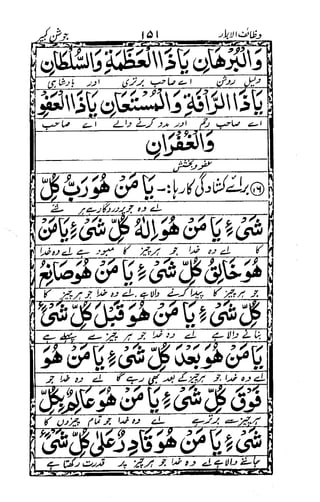 وظائف الابرار ۱۵۱ جوشن کبیر
وَالْبُرْهَانِ يَاذَا الْعَظَمَةِ وَالسُّلْطَانِ
دلیل روشن اے صاحب برتری اور بادشاہی
يَاذَا الرَّافَةِ وَالْمُسْتَعَانِ يَاذَا الْعَفْوِ
اے صاحب رحم اور مدد کرنے والے اے صاحب
وَالْغُفْرَانِ
عفو و بخشش
(۱۶) برائے کشادگی کارہا:- يَا مَنْ هُوَ رَبُّ كُلِّ
اے وہ جو پروردگار ہے ہر شے
شَیْءٍ يَا مَنْ هُوَ اِلٰهُ كُلِّ شَیْءٍ يَا مَنْ
کا اے وہ خدا جو ہر چیز کا معبود ہے اے وہ خدا
هُوَ خَالِقُ كُلِّ شَیْءٍ يَا مَنْ هُوَ صَانِعُ
جو ہر چیز کا پیدا کرنے والا ہے اے وہ خدا جو ہر چیز کا
كُلِّ شَیْءٍ يَا مَنْ هُوَ قَبْلَ كُلِّ شَیْءٍ
بنانے والا ہے اے وہ خدا جو ہر چیز سے پہلے ہے
يَا مَنْ هُوَ بَعْدَ كُلِّ شَیْءٍ يَا مَنْ هُوَ
اے وہ خدا جو ہر چیز کے بعد بھی رہے گا اے وہ خدا جو
فَوْقَ كُلِّ شَیْءٍ يَا مَنْ هُوَ عَالِمٌ بِكُلِّ
ہر چیز سے برتر ہے اے وہ خدا جو تمام چیزوں کا
شَیْءٍ يَا مَنْ هُوَ قَادِرٌ عَلٰی كُلِّ شَیْءٍ
جاننے والا ہے اے وہ خدا جو ہر چیز پر قدرت رکھتا ہے